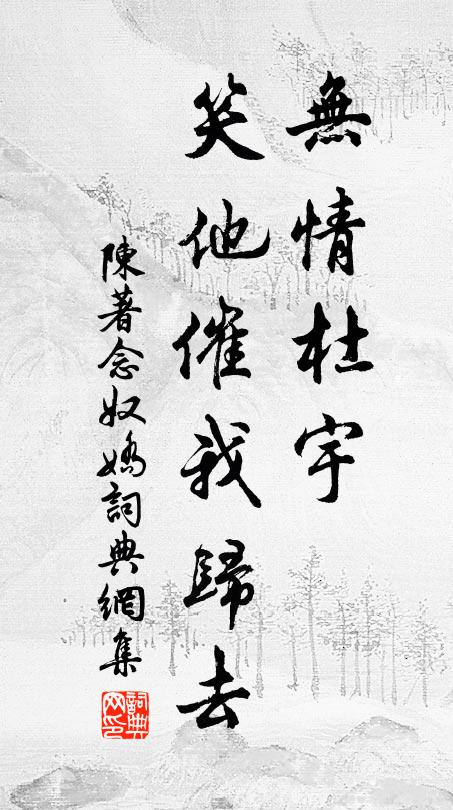 無情杜宇
笑他催我歸去
陳著念奴嬌詞典網集
詞典网印